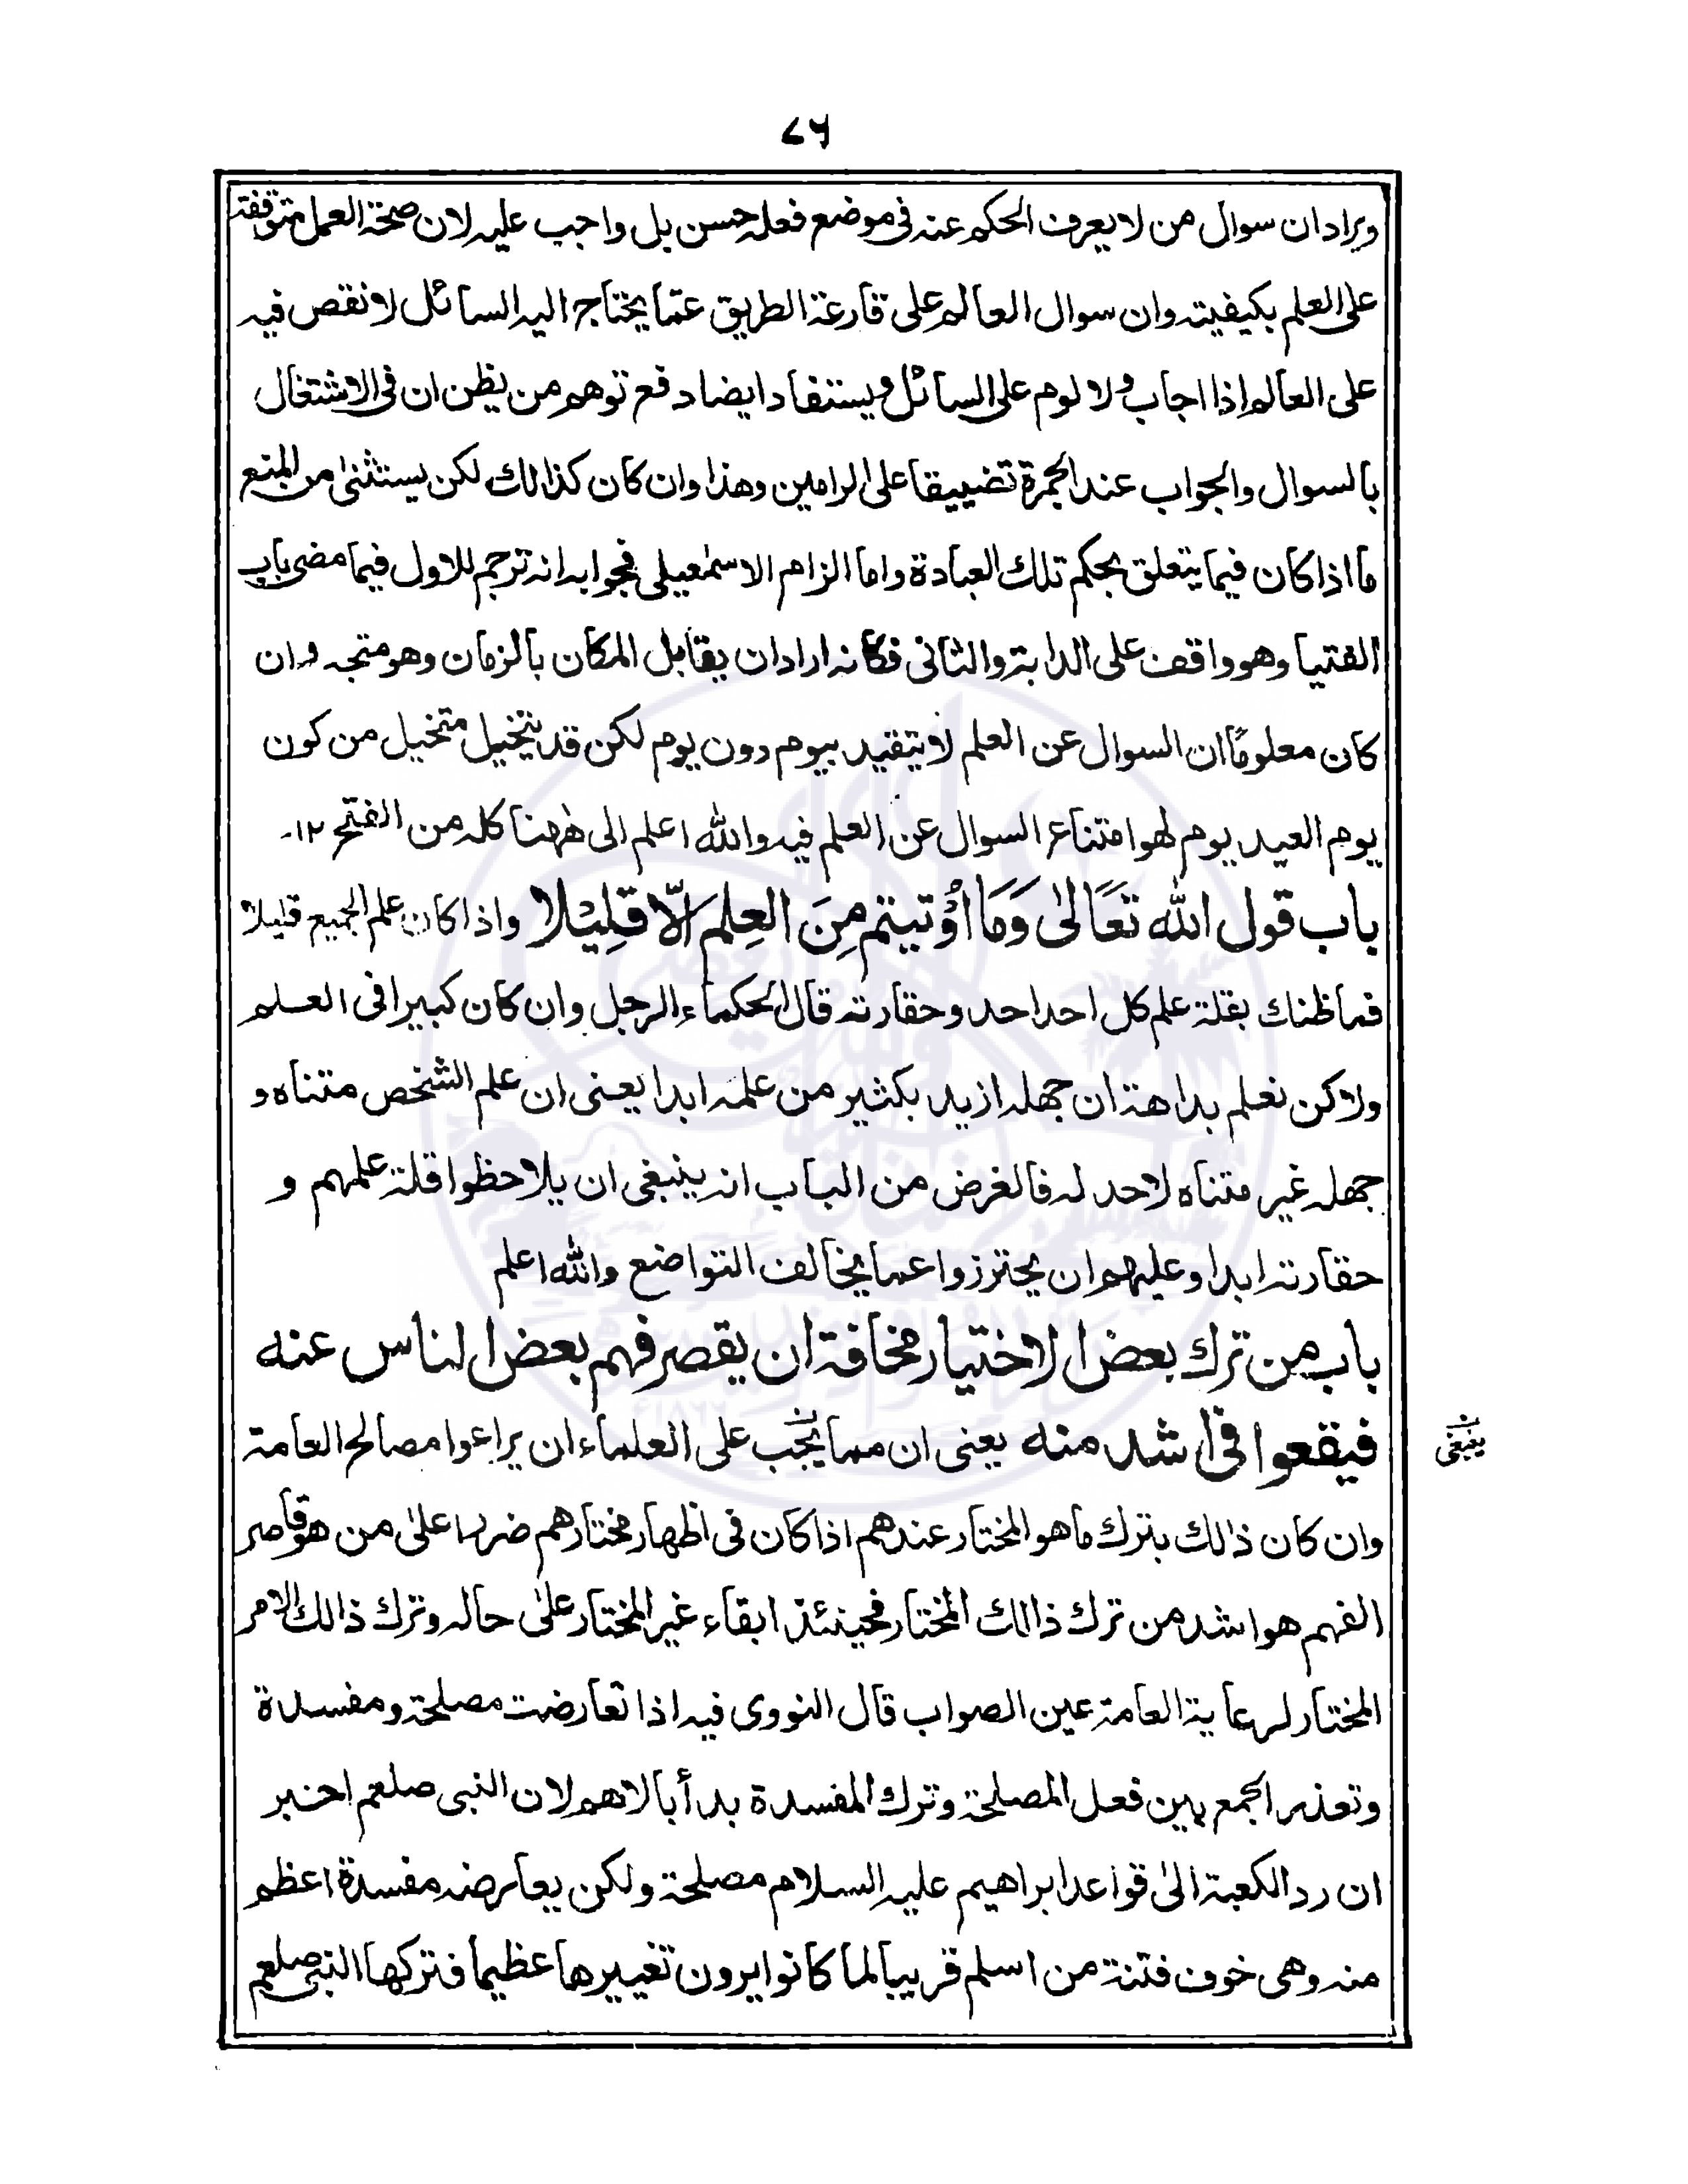 ۷۶
ويراد ان سوال من لا يعرف الحكم عنه فى موضع فعله حسن بل واجب عليه لان صحة العمل متوقفة
على العلم بكيفيته وان سوال العالم على قارعة الطريق عما يحتاج اليه السائل لا نقص فيه
على العالم اذا اجاب ولا لوم على السائل ويستفاد ايضا دفع توهم من يظن ان فى الاشتغال
بالسوال والجواب عند الجمرة تضييقا على الرامين وهذا وان كان كذالك لكن يستثنى من المنع
ما اذا كان فيما يتعلق بحكم تلك العبادة واما الزام الاسمٰعيلى فجوابه انه ترجم للاول فيما مضى باب
الفتيا وهو واقف على الدابة والثانى فكانه اراد ان يقابل المكان بالزمان وهو متجه وان
كان معلومًا ان السوال عن العلم لا يتقيد بيوم دون يوم لكن قد يتخيل متخيل من كون
يوم العيد يوم لهو امتناع السوال عن العلم فيه والله اعلم الى ههنا كله من الفتح ۱۲۔
باب قول الله تَعَالىٰ وَمَا أُوتيتم مِنَ العِلم اِلّا قَلِيْلا واذا كان علم الجميع قليلا
فما ظنك بقلة علم كل احد احد وحقارته قال الحكماء الرجل وان كان كبيرا فى العلم
ولاكن نعلم بداهة ان جهله ازيد بكثير من علمه ابدا يعنى ان علم الشخص متناه و
جهله غير متناه لاحد له فالغرض من الباب انه ينبغى ان يلاحظوا قلة علمهم و
حقارته ابدا وعليهم ان يحترزوا عما يخالف التواضع والله اعلم
باب من ترك بعض الاختيار مخافة ان يقصر فهم بعض الناس عنه
فيقعوا فى اشد منه يعنى ان مما يجب على العلماء ان يراعوا مصالح العامة
ينبغى
وان كان ذٰلك بترك ما هو المختار عندهم اذا كان فى اظهار مختارهم ضررا علىٰ من هو قاصر
الفهم هو اشد من ترك ذالك المختار فحينئذ ابقاء غير المختار علىٰ حاله وترك ذالك الامر
المختار لرعاية العامة عين الصواب قال النووى فيه اذا تعارضت مصلحة ومفسدة
وتعذر الجمع بين فعل المصلحة وترك المفسدة بدأ بالاهم لان النبى صلعم اخبر
ان رد الكعبة الىٰ قواعد ابراهيم عليه السلام مصلحة ولكن يعارضه مفسدة اعظم
منه وهى خوف فتنة من اسلم قريبا لما كانوا يرون تغييرها عظيما فتركها النبى صلعم